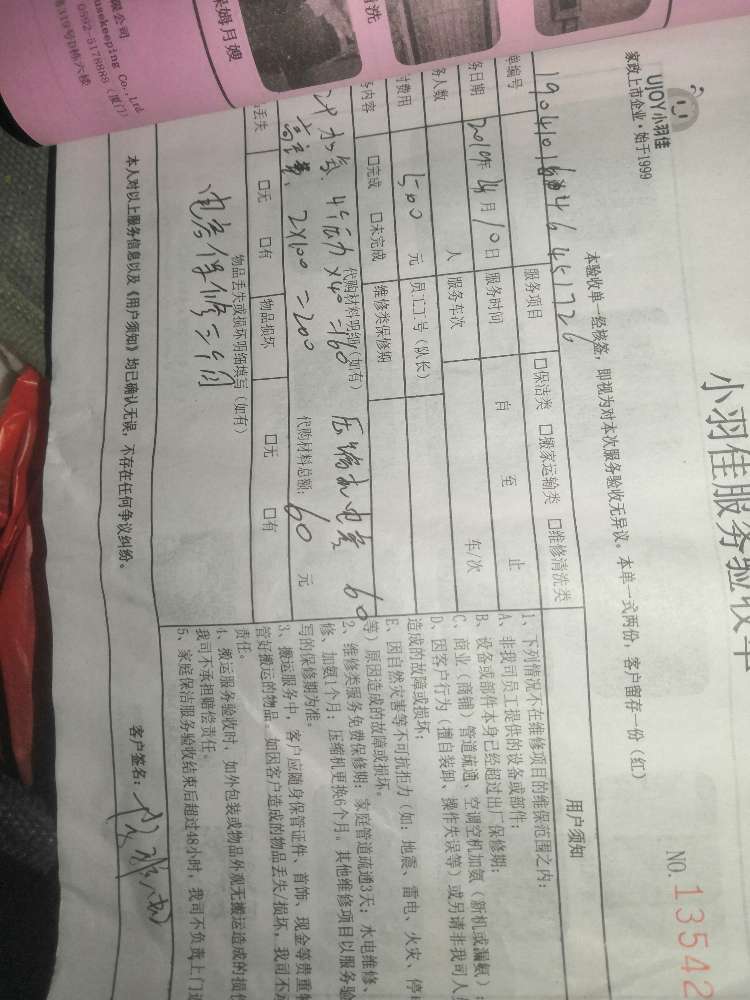 保姆月嫂
清洗
有限公司
usekeeping Co.,Ltd
0592-5178888 (厦门)
119号D栋六楼
UJOY小羽佳
家政上市企业,始于1999
小羽佳服务验收单
NO.13542
本验收单一经核签,即视为对本次服务验收无异议。本单一式两份,客户留存一份(红)
单编号
服务项目 □保洁类 □搬家运输类 □维修清洗类
务日期 2019年4月10日 服务时间 自 至 止
务人数 人 服务车次 车/次
费用 500 元 员工工号(队长)
务内容 □完成 □未完成 维修类保修期
代购材料明细(如有)
4个压力×40=160 压缩机电容 60
2×100=200
代购材料总额: 60 元
丢失 □无 □有 物品损坏 □无 □有
物品丢失或损坏明细填写(如有)
电容保修三个月
本人对以上服务信息以及《用户须知》均已确认无误,不存在任何争议纠纷。
用户须知
1、下列情况不在维修项目的维保范围之内:
A、非我司员工提供的设备或部件;
B、设备或部件本身已经超过出厂保修期;
C、商业(商铺)管道疏通、空调空机加氨(新机或漏氨);
D、因客户行为(擅自装卸、操作失误等)或另请非我司人
造成的故障或损坏;
E、因自然灾害等不可抗拒力(如:地震、雷电、火灾、停电
等)原因造成的故障或损坏。
2、维修类服务免费保修期:家庭管道疏通3天;水电维修、
修、加氨1个月;压缩机更换6个月。其他维修项目以服务验
写的保修期为准。
3、搬运服务中,客户应随身保管证件、首饰、现金等贵重物
管好搬运的物品。如因客户造成的物品丢失/损坏,我司不承
责任。
4、搬运服务验收时,如外包装或物品外观无搬运造成的损伤
我司不承担赔偿责任。
5、家庭保洁服务验收结束后超过48小时,我司不负责上门返
客户签名: